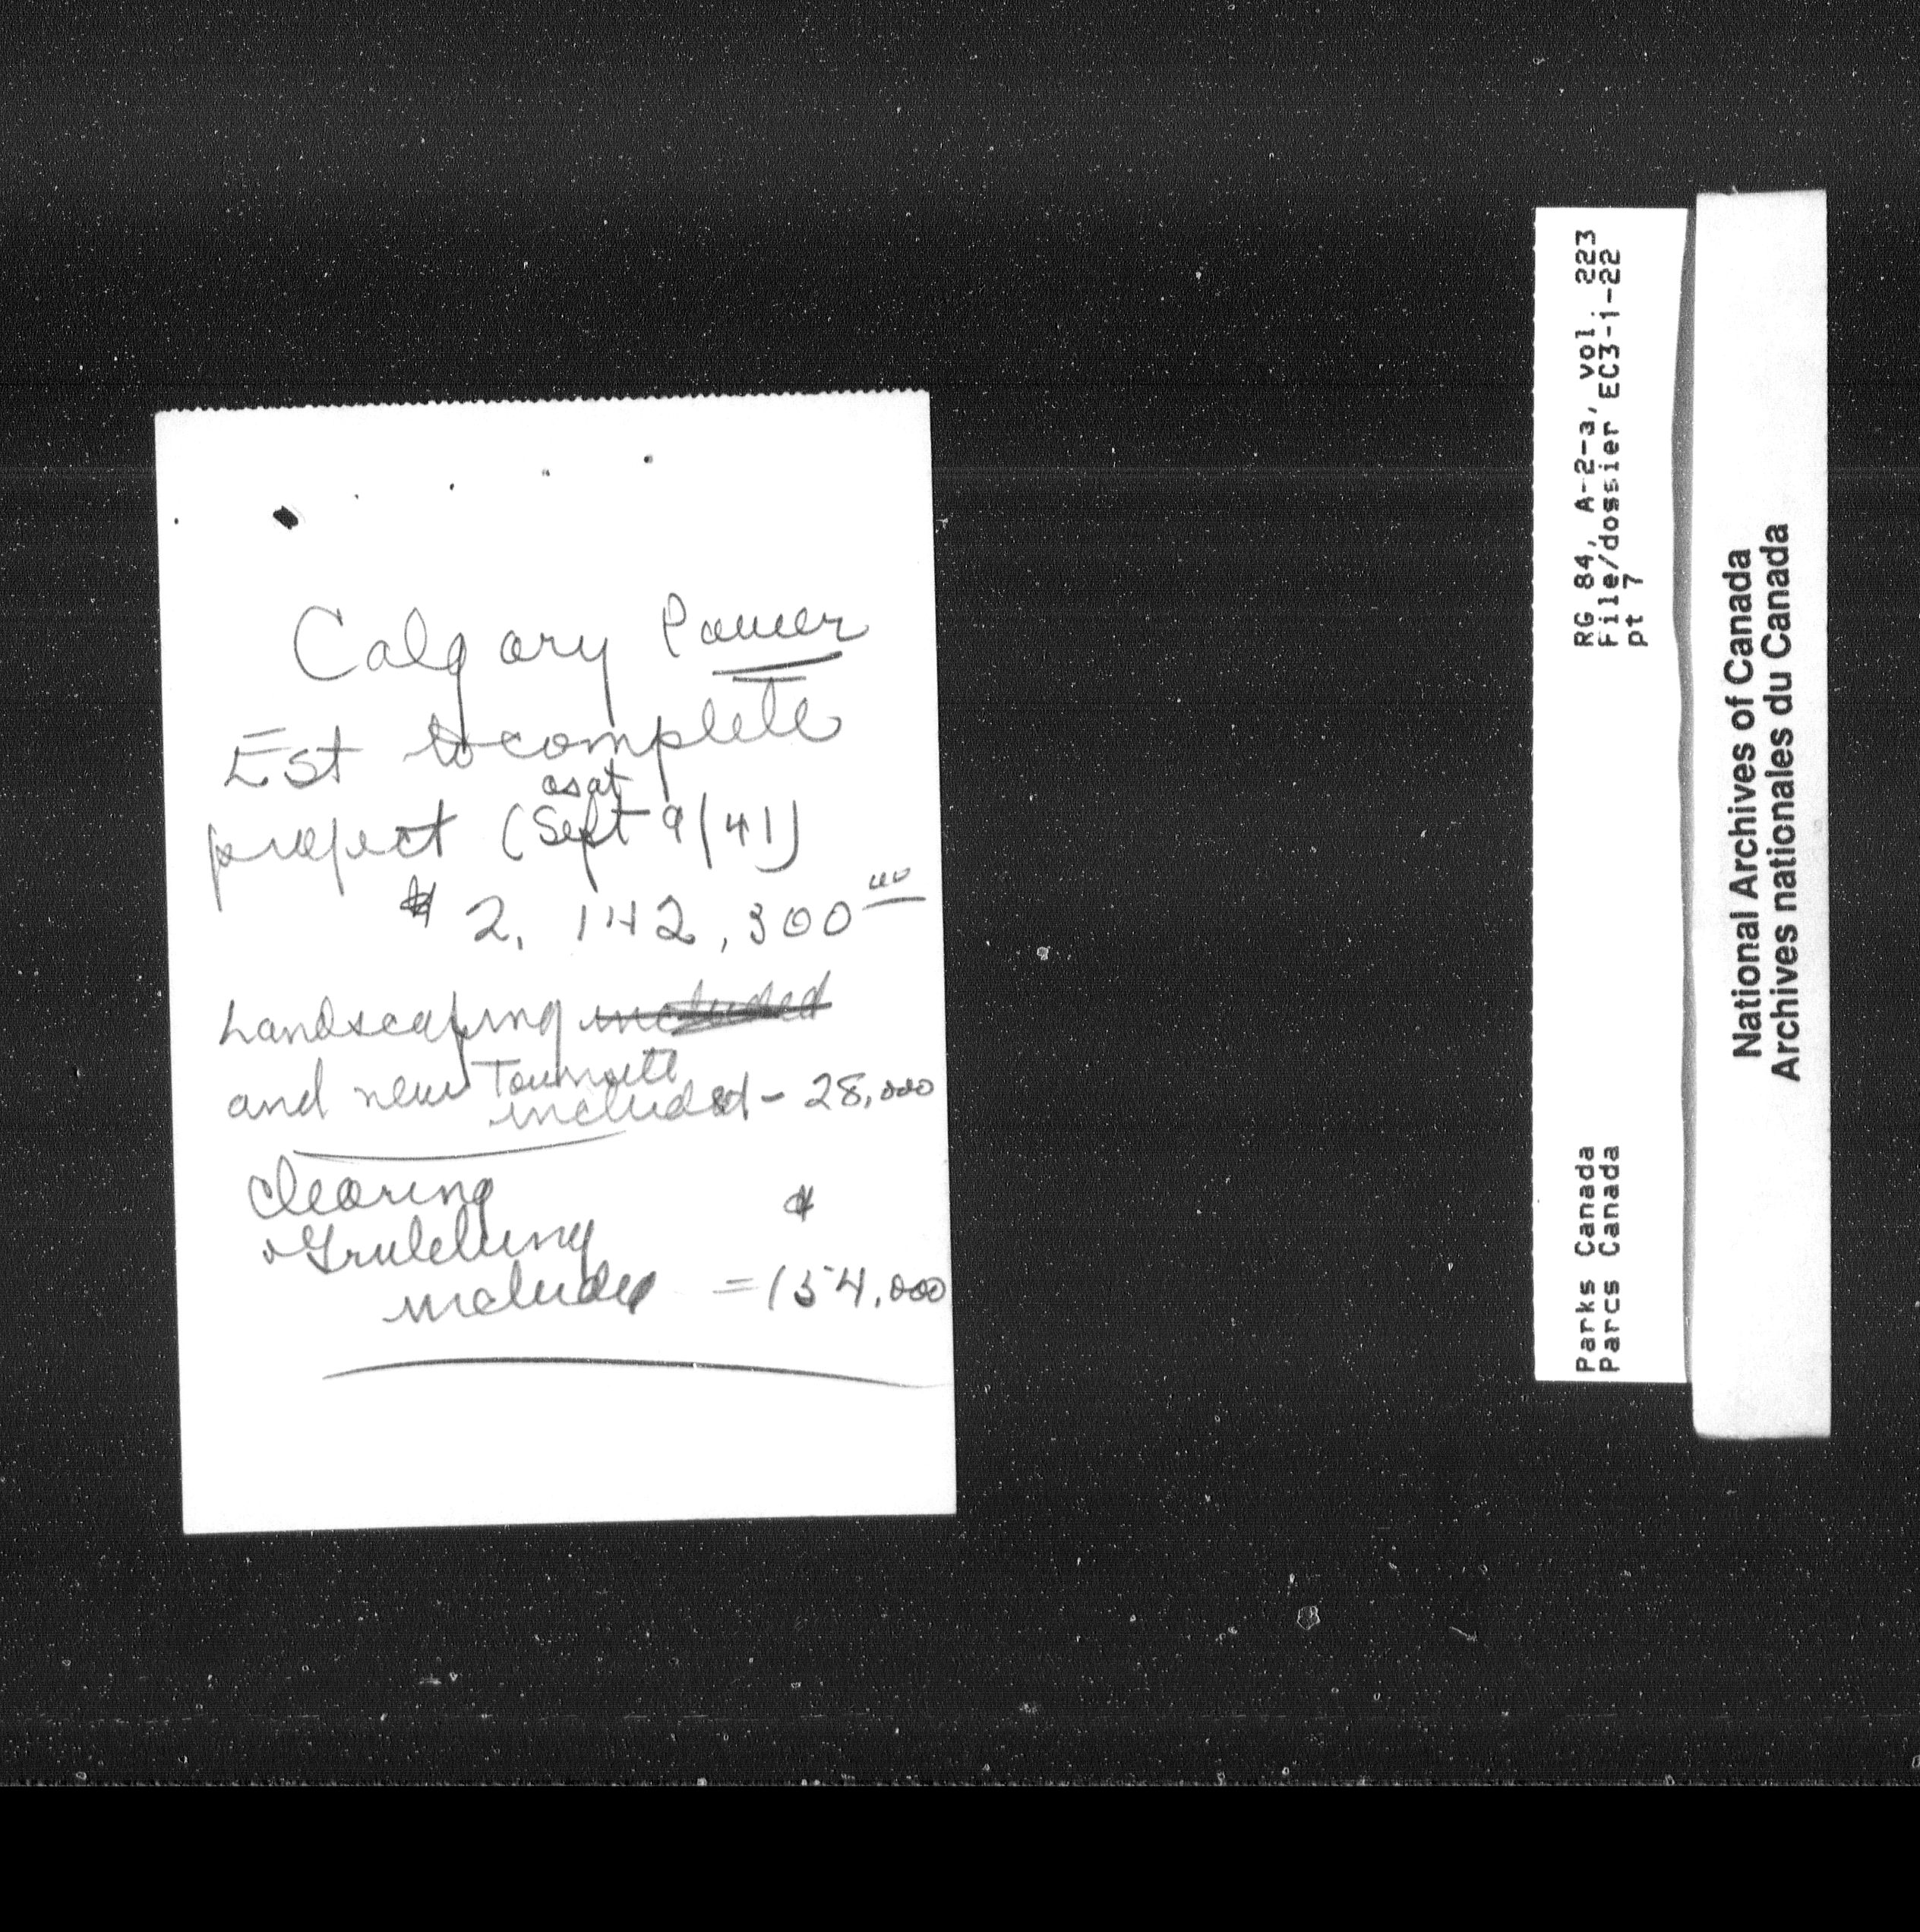 Calgary Power
Est to complete
as at
project (Sept 9/41)
$ 2,142,300 00
Landscaping included
and new Townsite
included - 28,000
Clearing
& Grubbing $
included = 154,000
RG 84, A-2-a, vol. 223
File/dossier EC3-1-22
pt 7
Parks Canada
Parcs Canada
National Archives of Canada
Archives nationales du Canada